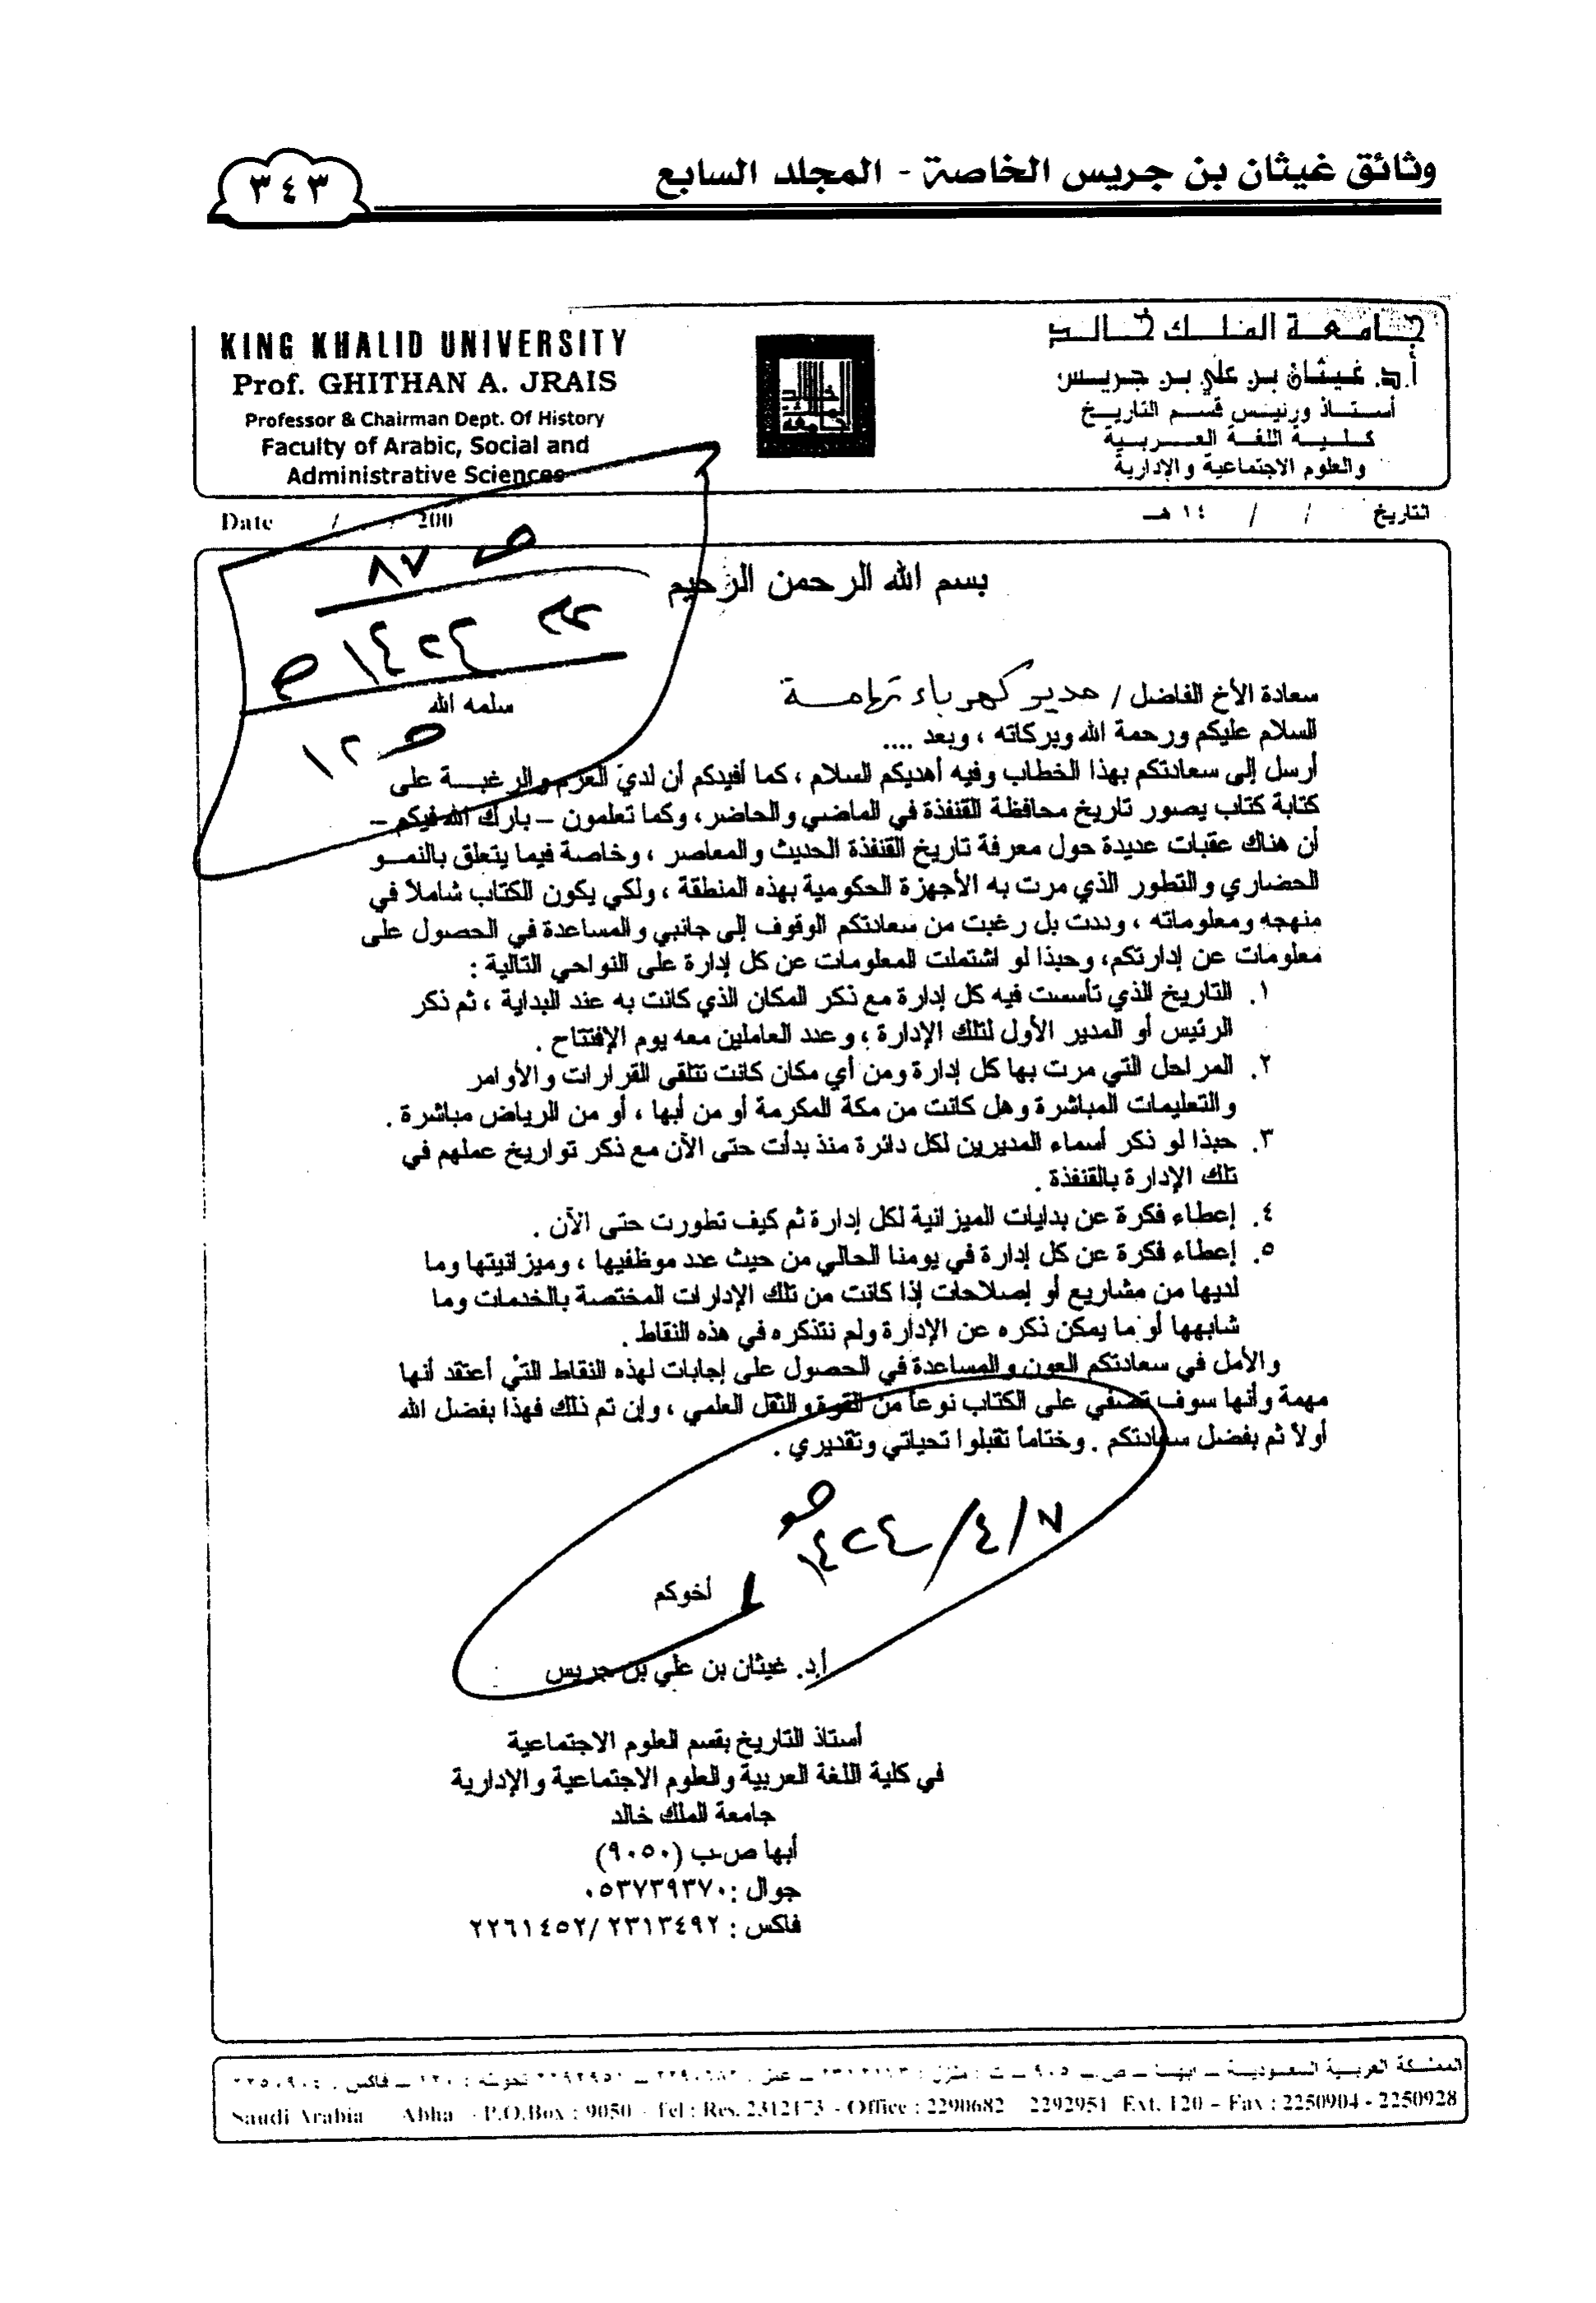 وثائق غيثان بن جريس الخاصة - المجلد السابع
٣٤٣
جامعة الملك خالد
أ.د. غيثان بن علي بن جريس
أستاذ ورئيس قسم التاريخ
كلية اللغة العربية
والعلوم الاجتماعية والإدارية
KING KHALID UNIVERSITY
Prof. GHITHAN A. JRAIS
Professor & Chairman Dept. Of History
Faculty of Arabic, Social and
Administrative Sciences
التاريخ / / ١٤ هـ
Date / / 200
ص ٨٧
بسم الله الرحمن الرحيم
سعادة الأخ الفاضل / مدير كهرباء تهامة سلمه الله
ص ١٢
السلام عليكم ورحمة الله وبركاته ، وبعد ....
أرسل إلى سعادتكم بهذا الخطاب وفيه أهديكم السلام ، كما أفيدكم أن لديَ العزم والرغبة على
كتابة كتاب يصور تاريخ محافظة القنفذة في الماضي والحاضر، وكما تعلمون – بارك الله فيكم –
أن هناك عقبات عديدة حول معرفة تاريخ القنفذة الحديث والمعاصر ، وخاصة فيما يتعلق بالنمو
الحضاري والتطور الذي مرت به الأجهزة الحكومية بهذه المنطقة ، ولكي يكون الكتاب شاملاً في
منهجه ومعلوماته ، وددت بل رغبت من سعادتكم الوقوف إلى جانبي والمساعدة في الحصول على
معلومات عن إدارتكم، وحبذا لو اشتملت المعلومات عن كل إدارة على النواحي التالية :
١. التاريخ الذي تأسست فيه كل إدارة مع ذكر المكان الذي كانت به عند البداية ، ثم ذكر
الرئيس أو المدير الأول لتلك الإدارة ، وعدد العاملين معه يوم الإفتتاح .
٢. المراحل التي مرت بها كل إدارة ومن أي مكان كانت تتلقى القرارات والأوامر
والتعليمات المباشرة وهل كانت من مكة المكرمة أو من أبها ، أو من الرياض مباشرة .
٣. حبذا لو ذكر أسماء المديرين لكل دائرة منذ بدأت حتى الآن مع ذكر تواريخ عملهم في
تلك الإدارة بالقنفذة .
٤. إعطاء فكرة عن بدايات الميزانية لكل إدارة ثم كيف تطورت حتى الآن .
٥. إعطاء فكرة عن كل إدارة في يومنا الحالي من حيث عدد موظفيها ، وميزانيتها وما
لديها من مشاريع أو إصلاحات إذا كانت من تلك الإدارات المختصة بالخدمات وما
شابهها أو ما يمكن ذكره عن الإدارة ولم نتذكره في هذه النقاط .
والأمل في سعادتكم العون والمساعدة في الحصول على إجابات لهذه النقاط التي أعتقد أنها
مهمة وأنها سوف تضفي على الكتاب نوعاً من القوة والثقل العلمي ، وإن تم ذلك فهذا بفضل الله
أولاً ثم بفضل سعادتكم . وختاماً تقبلوا تحياتي وتقديري .
٧/٤/١٤٢٤هـ
أخوكم
أ.د. غيثان بن علي بن جريس
أستاذ التاريخ بقسم العلوم الاجتماعية
في كلية اللغة العربية والعلوم الاجتماعية والإدارية
جامعة الملك خالد
أبها ص.ب (٩٠٥٠)
جوال : ٠٥٣٧٣٩٣٧٠
فاكس : ٢٢٦١٤٥٢/٢٣١٣٤٩٢
المملكة العربية السعودية – ابها
Saudi Arabia Abha - P.O.Box : 9050 - Tel : Res. 2312173 - Office : 2290682 2292951 Ext. 120 - Fax : 2250904 - 2250928